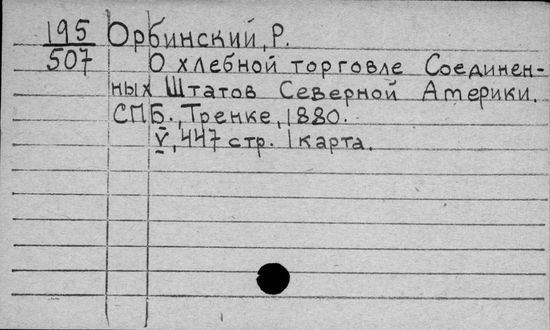 195 Орбинский, Р.
507 О хлебной торговле Соединен-
ных Штатов Северной Америки.
СПБ., Тренке, 1880.
V, 447 стр. 1 карта.